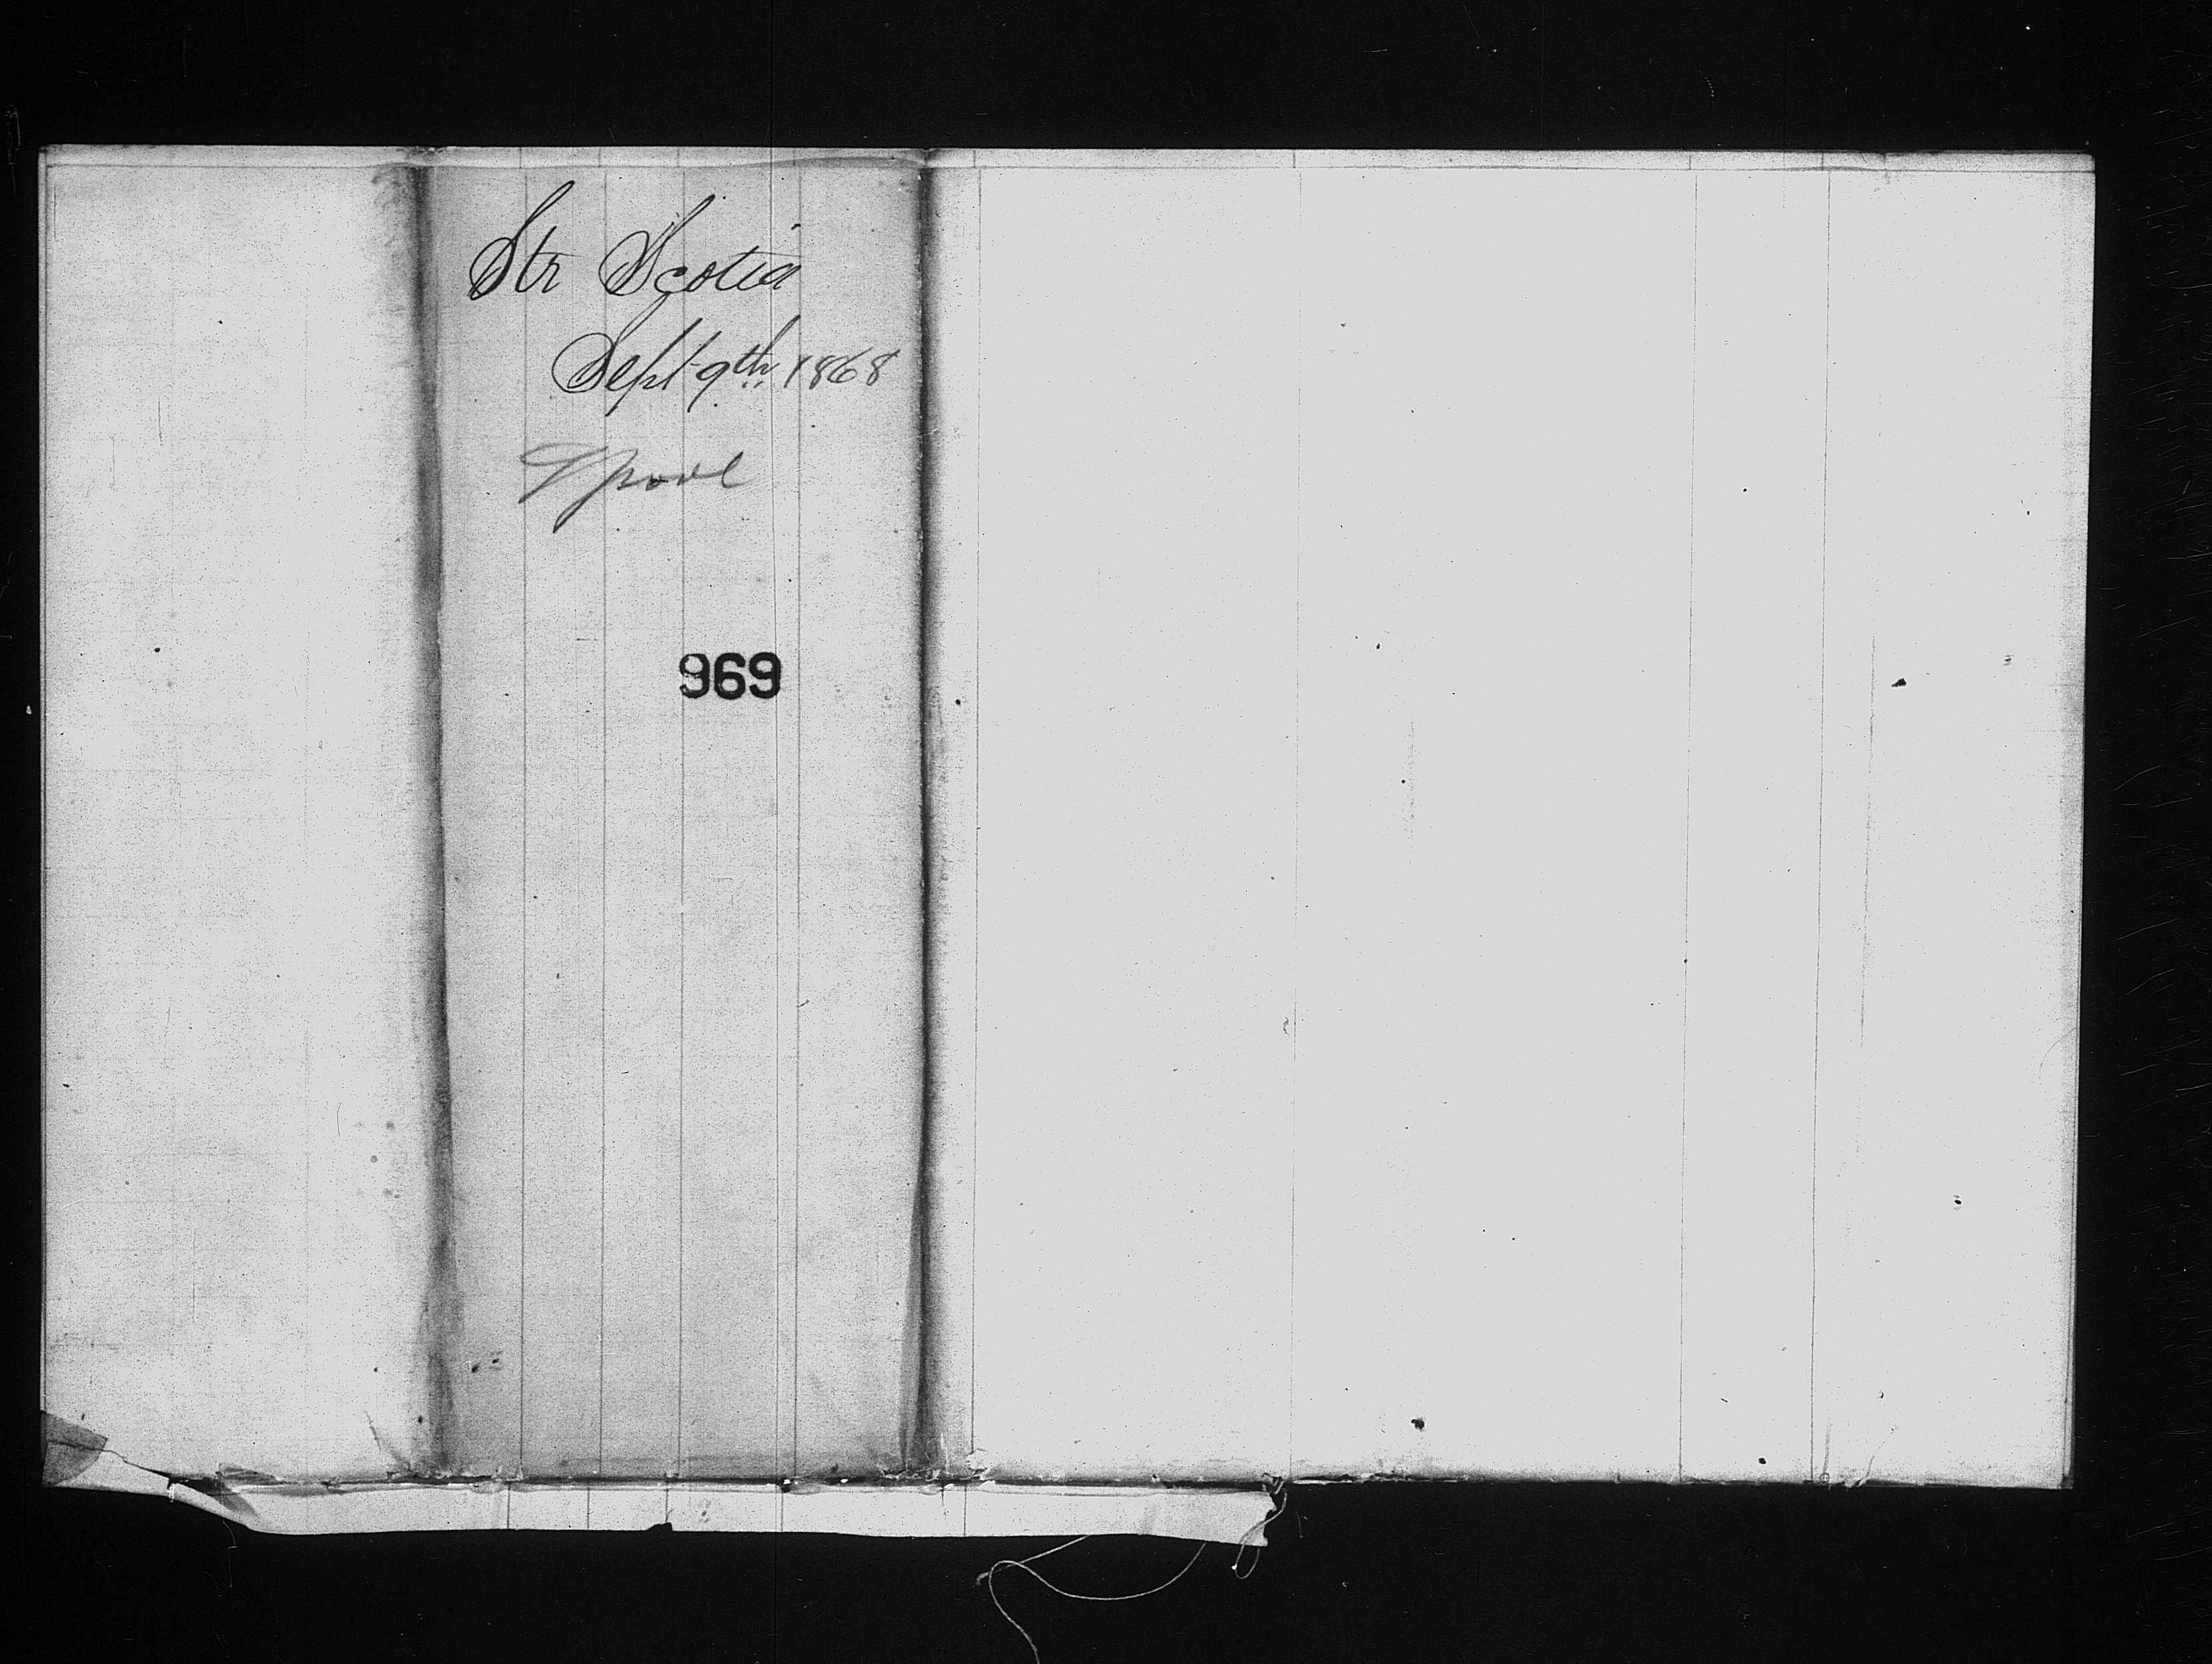 Str Scotia
Sept 9th 1868
Lpool
969